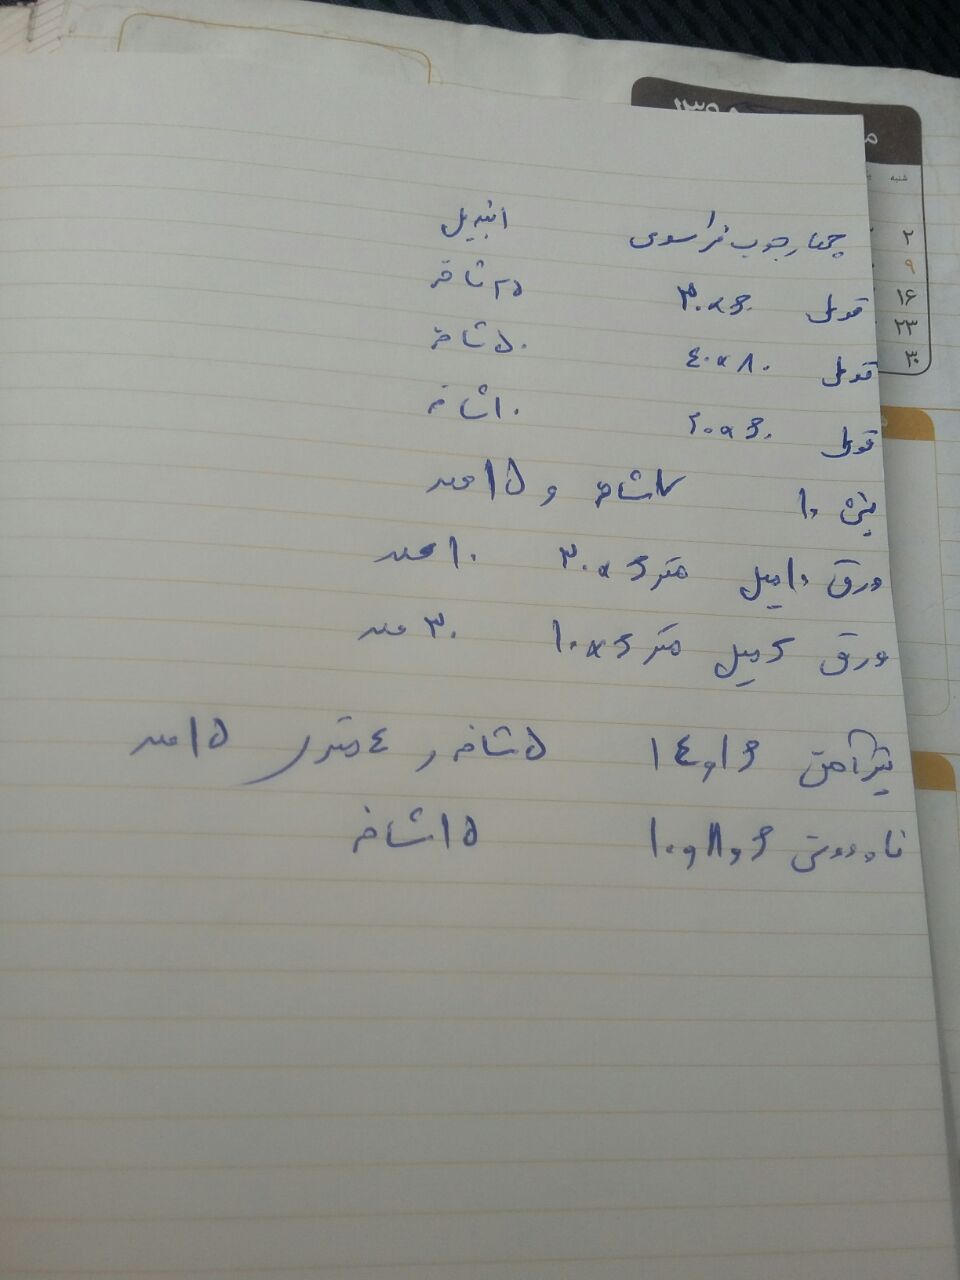 ۱۳۹۸
م
شنبه
۲
۹
۱۶
۲۳
۳۰
چهارچوب فراسوی اتبیل
قوطی ۳۰×۶۰ ۲۵ شاخه
قوطی ۴۰×۸۰ ۵۰ شاخه
قوطی ۲۰×۶۰ ۱۰ شاخه
۱۰ شاخه و ۱۵ عدد
ورق ۱۰ میل متر ۳۰×۲ ۱۰ عدد
ورق ۲ میل متر ۱۰×۲ ۳۰ عدد
تیرآهن ۱۶ و ۱۴ ۵ شاخه و ۴ متر ۱۵ عدد
ناودونی ۶ و ۸ و ۱۰ ۱۵ شاخه